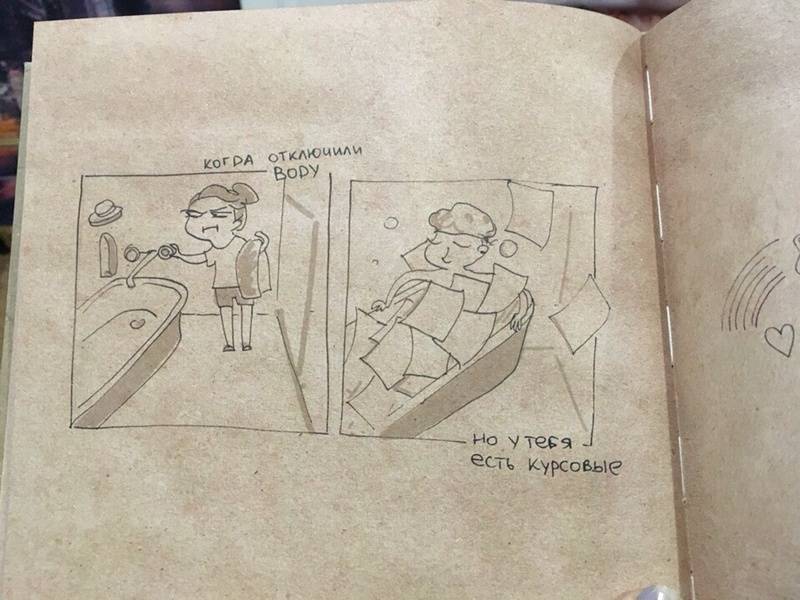 когда отключили
воду
но у тебя
есть курсовые